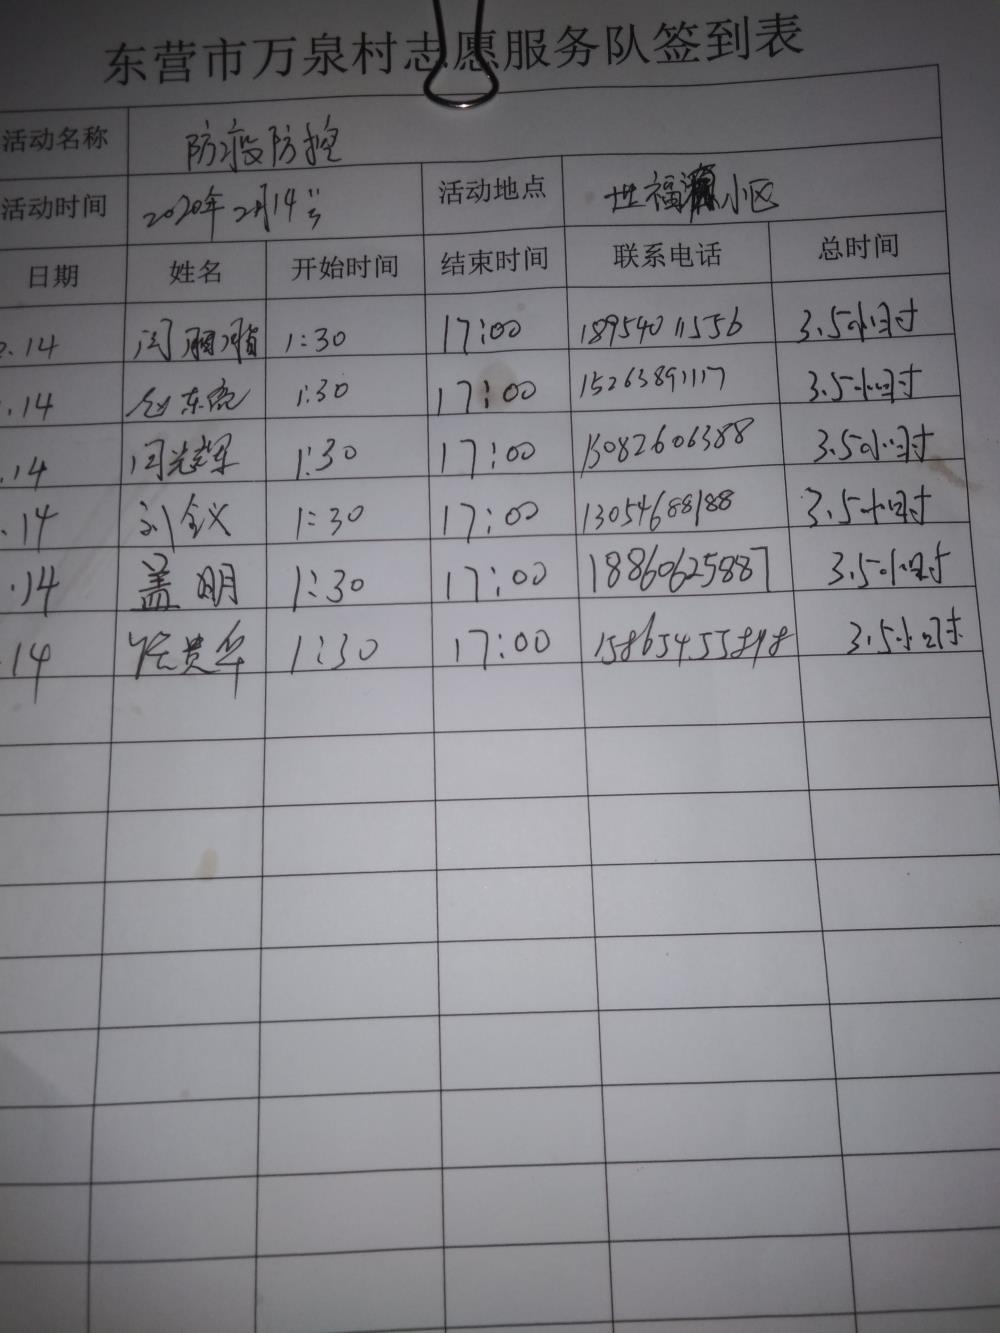 东营市万泉村志愿服务队签到表
活动名称 防疫防控
活动时间 2020年2月14号 活动地点 世福源小区
日期 姓名 开始时间 结束时间 联系电话 总时间
2.14 闫丽 1:30 17:00 18954011556 3.5小时
.14 东 1:30 17:00 15263891117 3.5小时
.14 闫 1:30 17:00 15082606388 3.5小时
.14 刘 1:30 17:00 13054688188 3.5小时
.14 盖明 1:30 17:00 18860625887 3.5小时
.14 贵华 1:30 17:00 15865455898 3.5小时